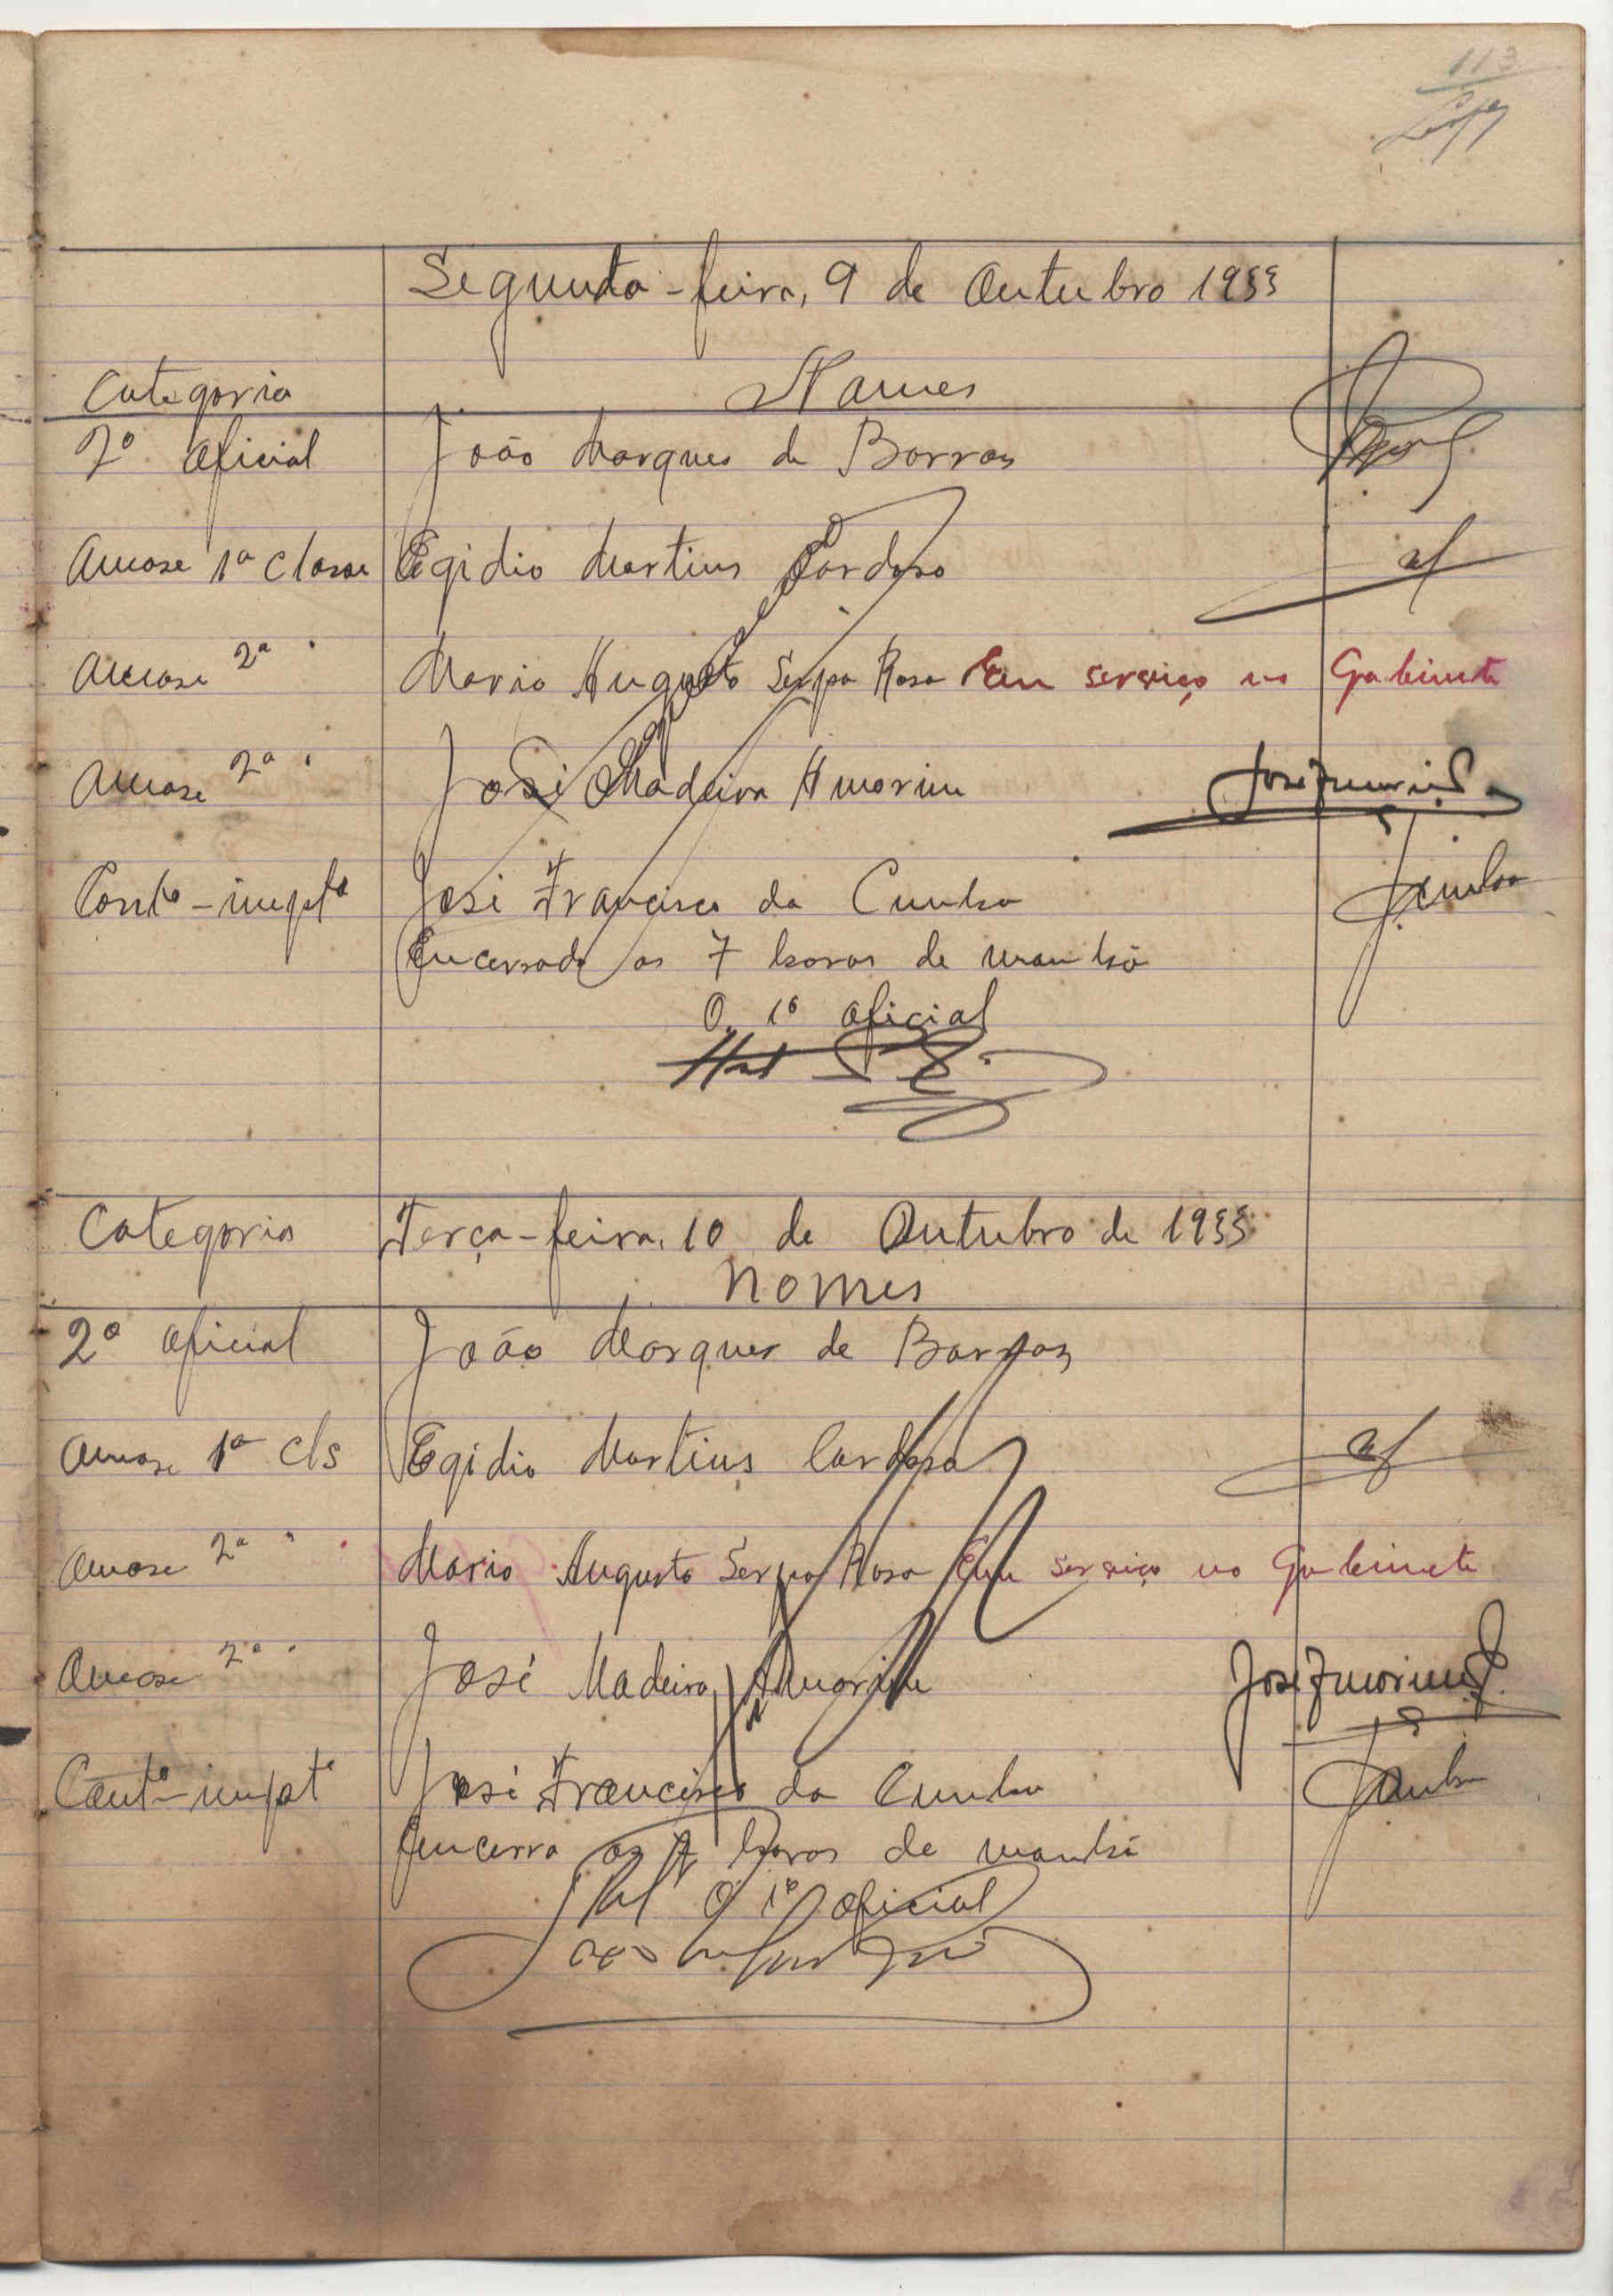 113
Segunda-feira, 9 de Outubro 1933
Categoria Nomes
2º Oficial João Marques de Barros
1ª Classe Egidio Martins Cardoso
2ª " Mario Augusto Serpa Rosa Em serviço no Gabinete
2ª " José Madeira Amorim José Amorim
José Francisco da Cunha JCunha
Encerrado as 7 horas de manhã
O 1º Oficial
Categoria Terça-feira, 10 de Outubro de 1933
Nomes
2º Oficial João Marques de Barros
1ª cls Egidio Martins Cardoso
2ª " Mario Augusto Serpa Rosa Em serviço no Gabinete
2ª " José Madeira Amorim José Amorim
José Francisco da Cunha JCunha
Encerra as 7 horas de manhã
O 1º Oficial